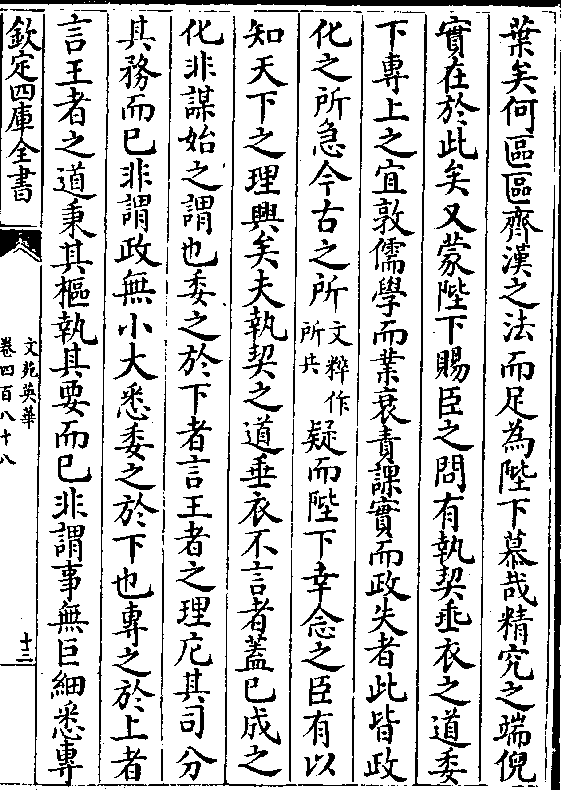 葉矣何區區齊漢之法而足為陛下慕哉精究之端倪
實在於此矣又蒙陛下賜臣之問有執契垂衣之道委
下專上之宜敦儒學而業衰責課實而政失者此皆政
化之所急今古之所文粹作所共疑而陛下幸念之臣有以
知天下之理興矣夫執契之道垂衣不言者蓋已成之
化非謀始之謂也委之於下者言王者之理庀其司分
其務而已非謂政無小大悉委之於下也專之於上者
言王者之道秉其樞執其要而已非謂事無巨細悉專
欽定四庫全書
文苑英華
卷四百八十八
十三